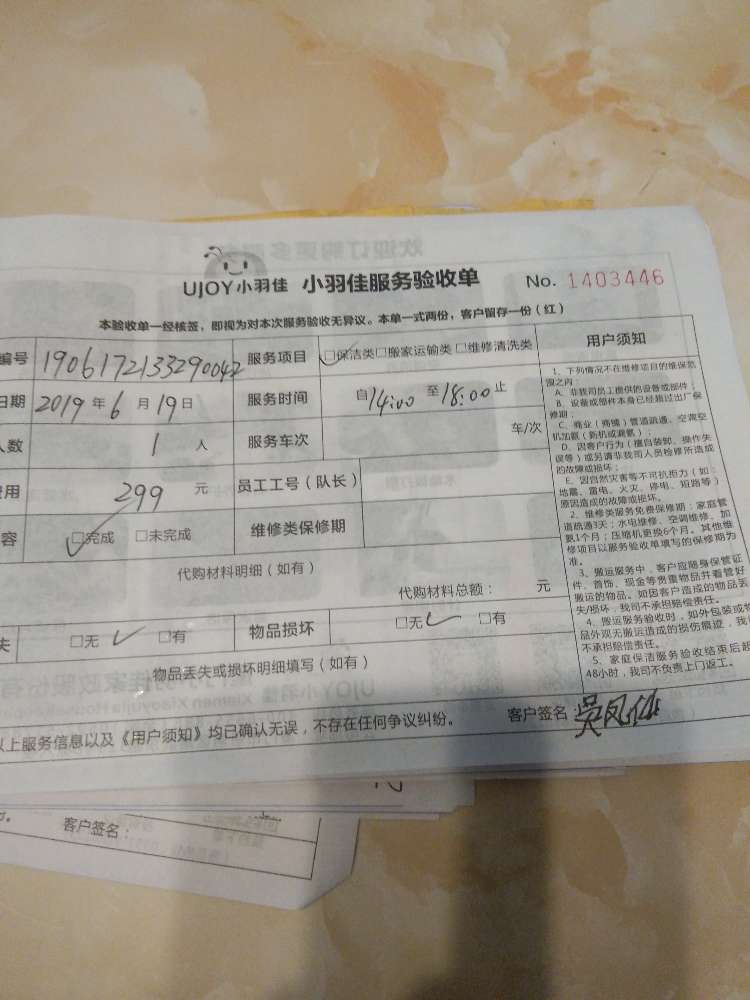 UJOY小羽佳 小羽佳服务验收单 No. 1403446
本验收单一经核签，即视为对本次服务验收无异议。本单一式两份，客户留存一份（红）
编号 1906172133290042 服务项目 □保洁类□搬家运输类 □维修清洗类
日期 2019 年 6 月 19 日 服务时间 自 14:00 至 18:00 止
人数 1 人 服务车次 车/次
费用 299 元 员工工号（队长）
容 □完成 □未完成 维修类保修期
代购材料明细（如有）
代购材料总额： 元
失 □无 □有 物品损坏 □无 □有
物品丢失或损坏明细填写（如有）
以上服务信息以及《用户须知》均已确认无误，不存在任何争议纠纷。 客户签名：吴凤仙
用户须知
1、下列情况不在维修项目的维保范
围之内：
A、非我司员工提供的设备或部件；
B、设备或部件本身已经超过出厂保
修期；
C、商业（商铺）管道疏通、空调空
机加氨（新机或漏氨）；
D、因客户行为（擅自装卸、操作失
误等）或另请非我司人员检修所造成
的故障或损坏；
E、因自然灾害等不可抗拒力（如：
地震、雷电、火灾、停电、短路等）
原因造成的故障或损坏。
2、维修类服务免费保修期：家庭管
道疏通3天；水电维修、空调维修、加
氨1个月；压缩机更换6个月。其他维
修项目以服务验收单填写的保修期为
准。
3、搬运服务中，客户应随身保管证
件、首饰、现金等贵重物品并看管好
搬运的物品。如因客户造成的物品丢
失/损坏，我司不承担赔偿责任。
4、搬运服务验收时，如外包装或物
品外观无搬运造成的损伤痕迹，我
不承担赔偿责任。
5、家庭保洁服务验收结束后超
48小时，我司不负责上门返工。
客户签名：